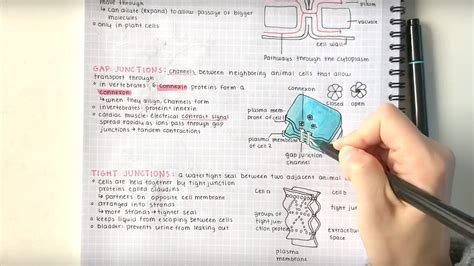 move through
↳ can dilate (expand) to allow passage of bigger
molecules
○ only in plant cells
vacuole
cell wall
Pathways through the cytoplasm
GAP JUNCTIONS: channels between neighboring animal cells that allow
transport through
○ in vertebrates: 6 connexin proteins form a
connexon
↳ when they align, channels form
○ invertebrates: protein innexin
○ cardiac muscle: electrical contract signal
spread rapidly as ions pass through gap
junctions → tandem contractions
closed open
plasma
membrane
of cell 1
plasma membrane
of cell 2
gap junction
channel
TIGHT JUNCTIONS: a watertight seal between two adjacent animal
○ cells are held together by tight junction
proteins called claudins
↳ partners on opposite cell membrane
○ arranged into strands
↳ more strands = tighter seal
○ keeps liquid from escaping between cells
○ bladder: prevents urine from leaking out
cell a
groups of
tight jun
ction protein
extracellular
space